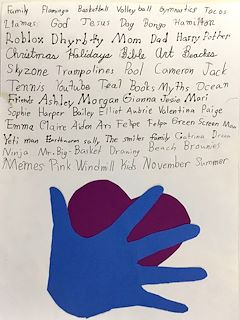 Family Flamingo Basketball Volleyball Gymnastics Tacos
Llamas God Jesus Dog Bongo Hamilton
Roblox Mom Dad Harry Potter
Christmas Holidays Bible Art Beaches
Skyzone Trampolines Pool Cameron Jack
Tennis Youtube Teal Books Myths Ocean
Friends Ashley Morgan Gianna Josie Mari
Sophie Harper Bailey Elliot Aubrie Valentina Paige
Emma Claire Aiden Ari Felipe Green Screen Man
Yeti man sally The smiler family
Ninja Mr. Big Basket Drawing Beach Brownies
Memes Pink Windmill Kids November Summer